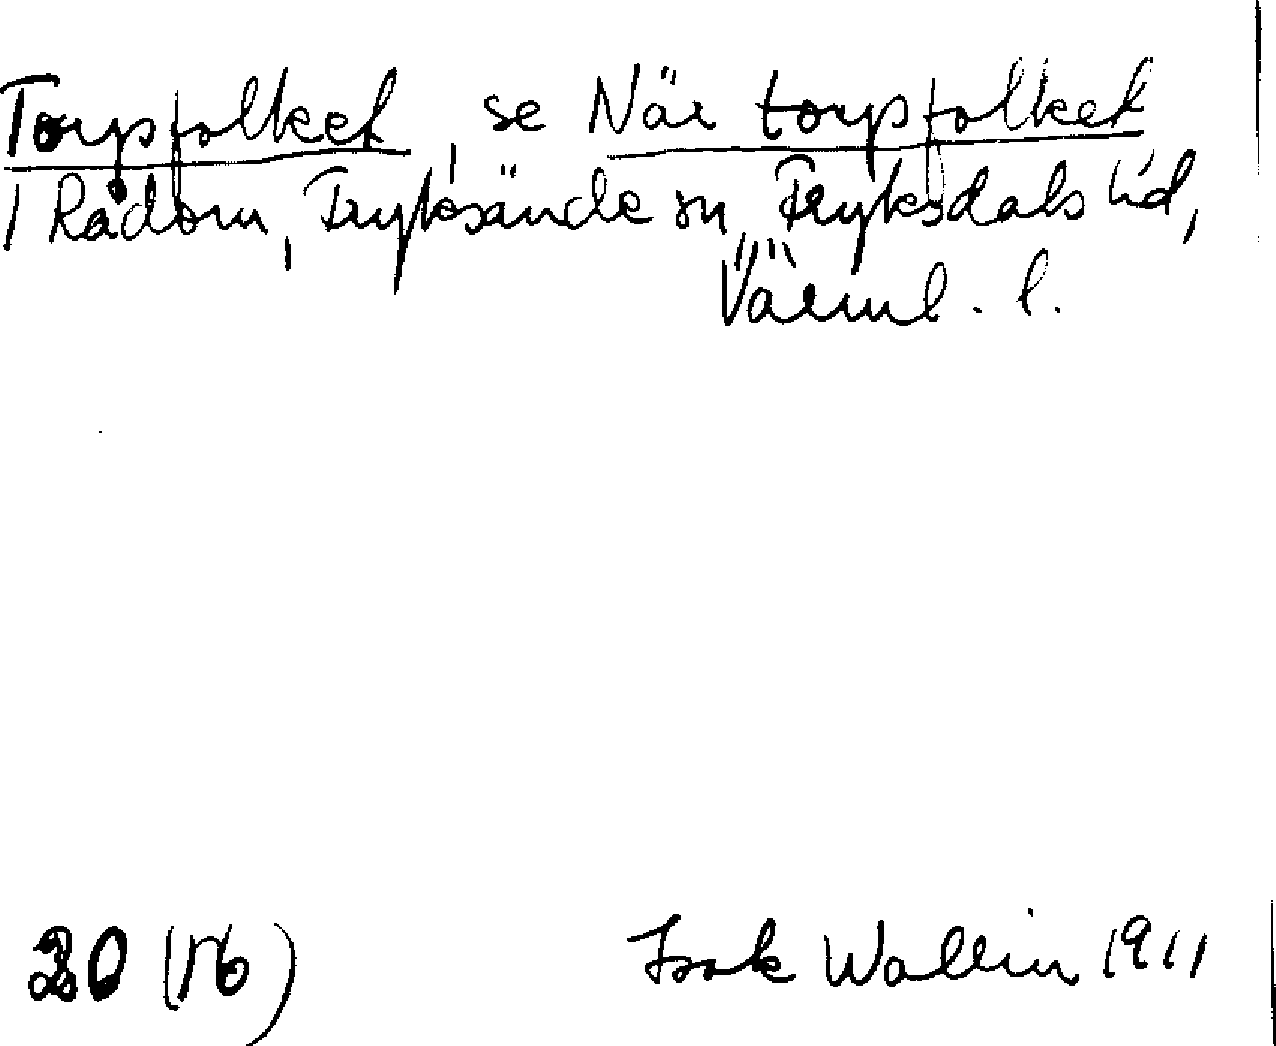 Torpfolket, se När torpfolket
i Rådom, Fryksände sn, Fryksdals hd,
Värml. l.
20 (16)
Isak Wallin 1911